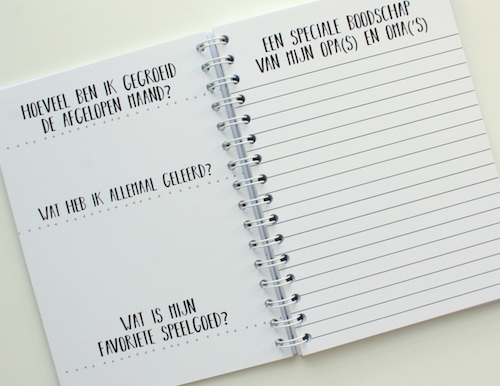 HOEVEEL BEN IK GEGROEID
DE AFGELOPEN MAAND?
WAT HEB IK ALLEMAAL GELEERD?
WAT IS MIJN
FAVORIETE SPEELGOED?
EEN SPECIALE BOODSCHAP
VAN MIJN OPA(S) EN OMA('S)